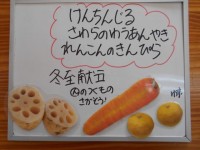 けんちんじる
さわらのゆうあんやき
れんこんのきんぴら
冬至献立
のつくもの
さがそう!